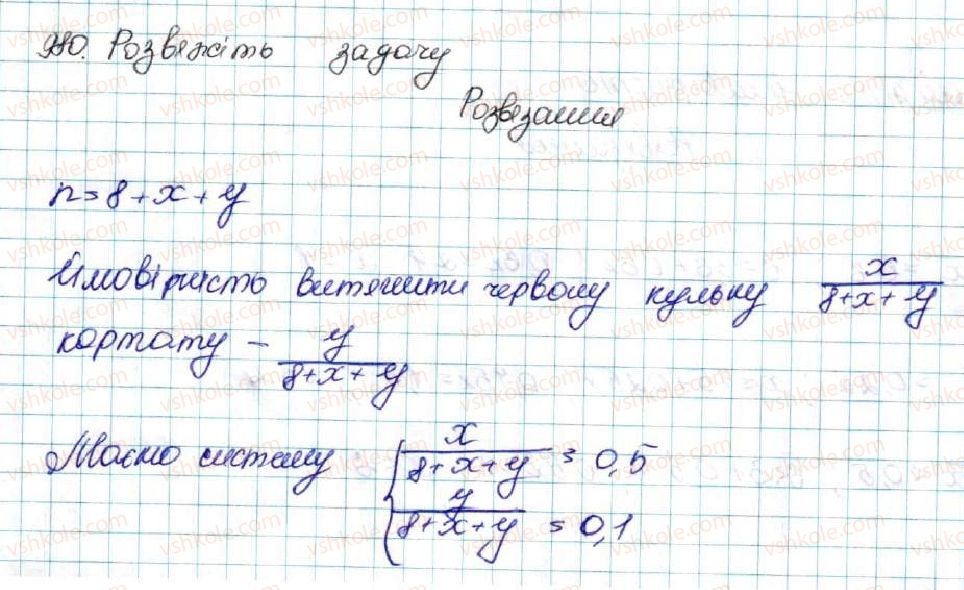 980. Розвяжіть задачу
Розвязання
n = 8 + x + y
Ймовірність витягнути червону кульку x / (8 + x + y)
картату – y / (8 + x + y)
Маємо систему { x / (8 + x + y) = 0,5
y / (8 + x + y) = 0,1
vshkole.com